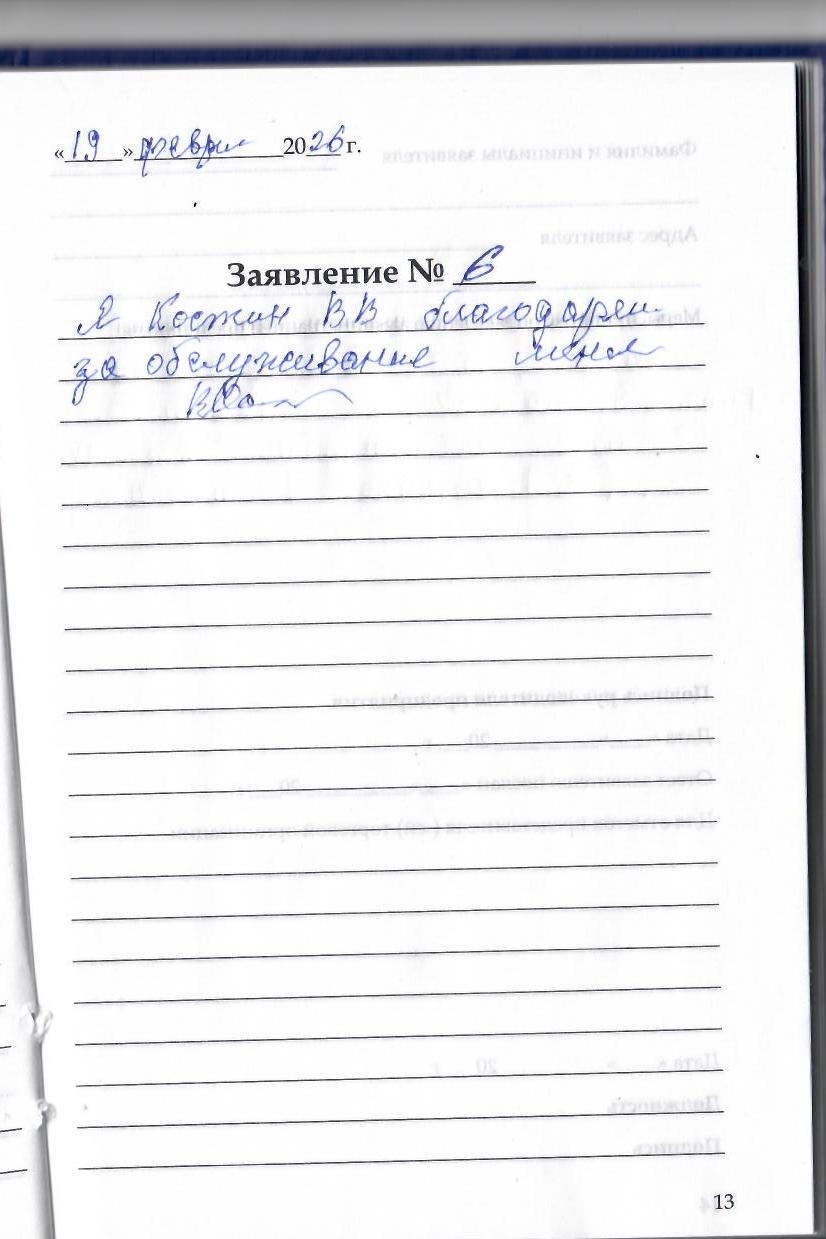 «19» феврал 2026 г.
Заявление № 6
Я Костин ВВ благодарен
за обслуживание меня
13